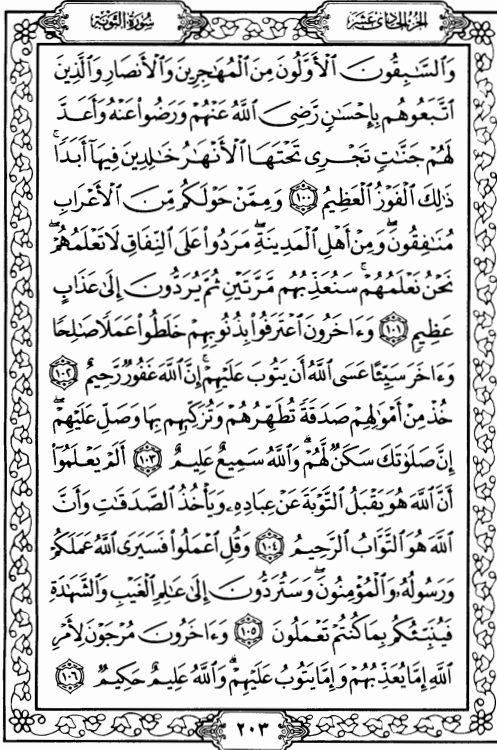 سُورَةُ التَّوۡبَةِ
الجُزءُ الحَادِي عَشَرَ
وَٱلسَّٰبِقُونَ ٱلۡأَوَّلُونَ مِنَ ٱلۡمُهَٰجِرِينَ وَٱلۡأَنصَارِ وَٱلَّذِينَ
ٱتَّبَعُوهُم بِإِحۡسَٰنٖ رَّضِيَ ٱللَّهُ عَنۡهُمۡ وَرَضُواْ عَنۡهُ وَأَعَدَّ
لَهُمۡ جَنَّٰتٖ تَجۡرِي تَحۡتَهَا ٱلۡأَنۡهَٰرُ خَٰلِدِينَ فِيهَآ أَبَدٗاۚ
ذَٰلِكَ ٱلۡفَوۡزُ ٱلۡعَظِيمُ ١٠٠ وَمِمَّنۡ حَوۡلَكُم مِّنَ ٱلۡأَعۡرَابِ
مُنَٰفِقُونَۖ وَمِنۡ أَهۡلِ ٱلۡمَدِينَةِ مَرَدُواْ عَلَى ٱلنِّفَاقِ لَا تَعۡلَمُهُمۡۖ
نَحۡنُ نَعۡلَمُهُمۡۚ سَنُعَذِّبُهُم مَّرَّتَيۡنِ ثُمَّ يُرَدُّونَ إِلَىٰ عَذَابٍ
عَظِيمٖ ١٠١ وَءَاخَرُونَ ٱعۡتَرَفُواْ بِذُنُوبِهِمۡ خَلَطُواْ عَمَلٗا صَٰلِحٗا
وَءَاخَرَ سَيِّئًا عَسَى ٱللَّهُ أَن يَتُوبَ عَلَيۡهِمۡۚ إِنَّ ٱللَّهَ غَفُورٞ رَّحِيمٌ ١٠٢
خُذۡ مِنۡ أَمۡوَٰلِهِمۡ صَدَقَةٗ تُطَهِّرُهُمۡ وَتُزَكِّيهِم بِهَا وَصَلِّ عَلَيۡهِمۡۖ
إِنَّ صَلَوٰتَكَ سَكَنٞ لَّهُمۡۗ وَٱللَّهُ سَمِيعٌ عَلِيمٌ ١٠٣ أَلَمۡ يَعۡلَمُوٓاْ
أَنَّ ٱللَّهَ هُوَ يَقۡبَلُ ٱلتَّوۡبَةَ عَنۡ عِبَادِهِۦ وَيَأۡخُذُ ٱلصَّدَقَٰتِ وَأَنَّ
ٱللَّهَ هُوَ ٱلتَّوَّابُ ٱلرَّحِيمُ ١٠٤ وَقُلِ ٱعۡمَلُواْ فَسَيَرَى ٱللَّهُ عَمَلَكُمۡ
وَرَسُولُهُۥ وَٱلۡمُؤۡمِنُونَۖ وَسَتُرَدُّونَ إِلَىٰ عَٰلِمِ ٱلۡغَيۡبِ وَٱلشَّهَٰدَةِ
فَيُنَبِّئُكُم بِمَا كُنتُمۡ تَعۡمَلُونَ ١٠٥ وَءَاخَرُونَ مُرۡجَوۡنَ لِأَمۡرِ
ٱللَّهِ إِمَّا يُعَذِّبُهُمۡ وَإِمَّا يَتُوبُ عَلَيۡهِمۡۗ وَٱللَّهُ عَلِيمٌ حَكِيمٞ ١٠٦
٢٠٣